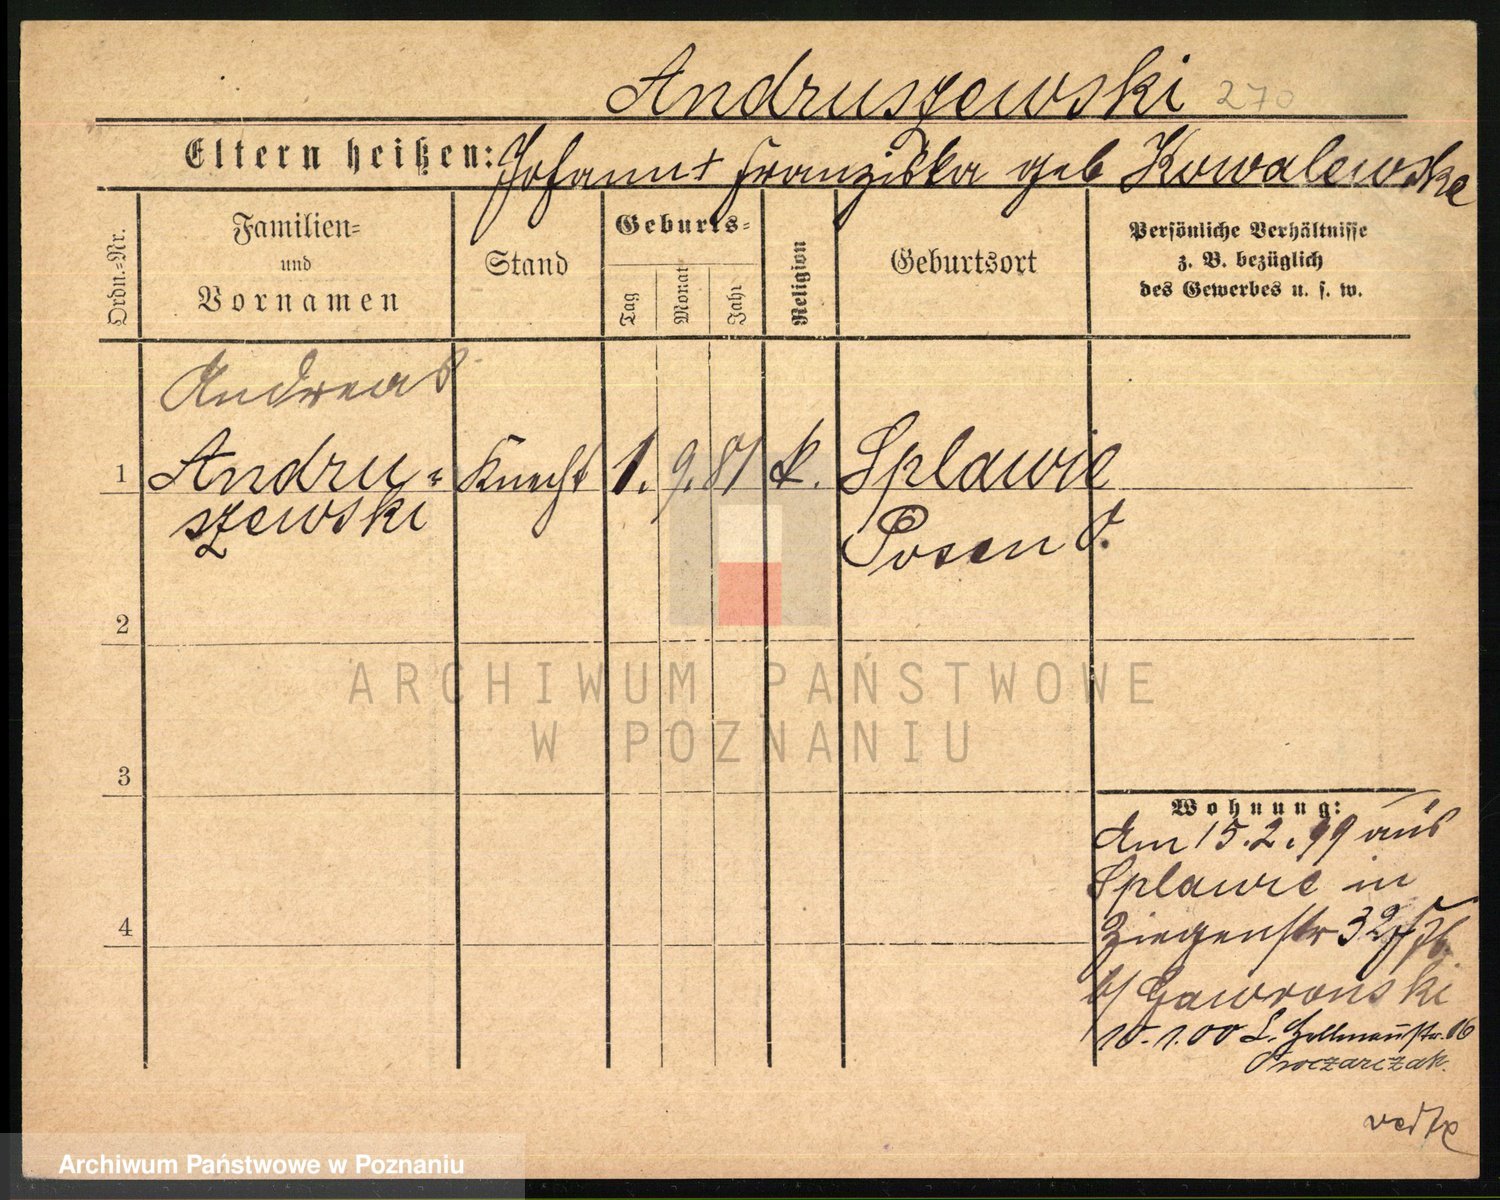 Andruszewski 270
Eltern heißen: Johann + Franziska geb Kowalewska
Ordn.=Nr.
Familien=
und
Vornamen
Stand
Geburts=
Tag
Monat
Jahr
Religion
Geburtsort
Persönliche Verhältnisse
z. B. bezüglich
des Gewerbes u. s. w.
Andreas
1 Andru= Knecht 1. 9. 81 k. Splawie
szewski Posen O.
2
ARCHIWUM PAŃSTWOWE
W POZNANIU
3
Wohnung:
Am 15.2.99 aus
Splawie in
4
Ziegenstr
b/ Gawronski
10.1.00 L. 16
vedte
Archiwum Państwowe w Poznaniu